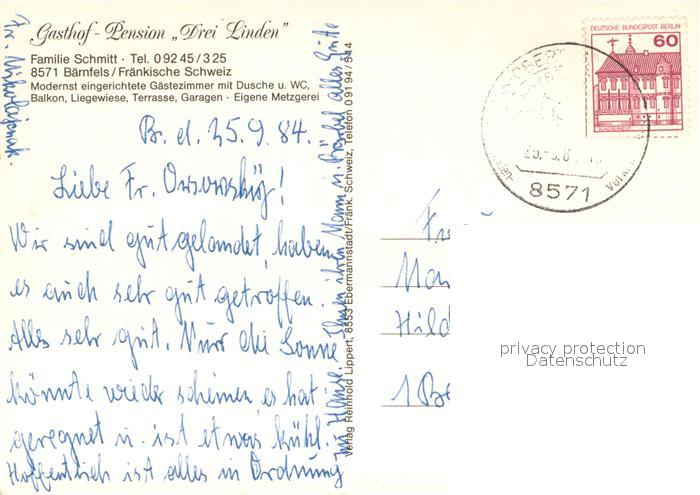 Gasthof - Pension „Drei Linden"
Familie Schmitt · Tel. 0 92 45 / 3 25
8571 Bärnfels / Fränkische Schweiz
Modernst eingerichtete Gästezimmer mit Dusche u. WC,
Balkon, Liegewiese, Terrasse, Garagen · Eigene Metzgerei
B. d. 25.9.84.
Liebe Fr.
Wir sind gut gelandet, haben
es auch sehr gut getroffen.
Alles sehr gut. Nur die Sonne
könnte wieder scheinen es hat
geregnet u. ist etwas kühl.
Hoffentlich ist alles in Ordnung
zu Hause. Ihnen ihren Mann u. Bärbel alles Gute
Fr.
Verlag Reinhold Lippert, 8553 Ebermannstadt/Fränk. Schweiz, Telefon 0 91 94 / 544
DEUTSCHE BUNDESPOST BERLIN
60
8571
Fr
Hild
1 Be
privacy protection
Datenschutz